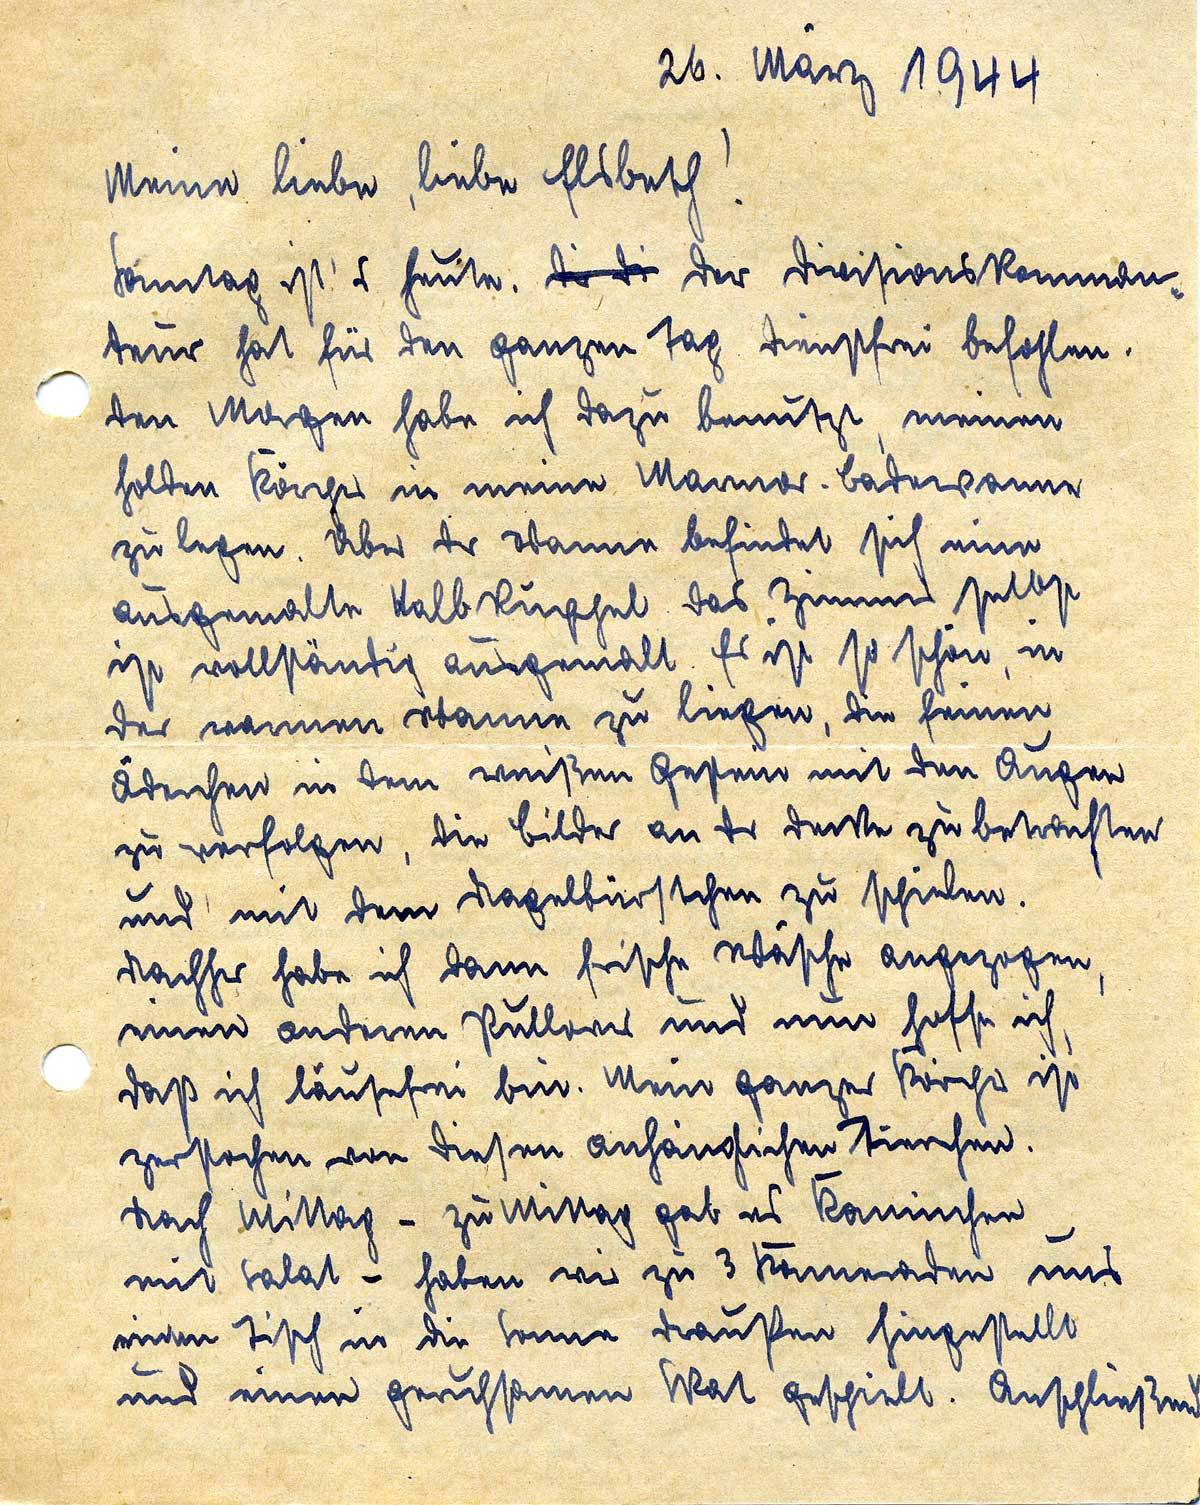 26. März 1944
Meine liebe, liebe Elsbeth!
Sonntag ist's heute. Der Divisionskomman-
deur hat für den ganzen Tag dienstfrei befohlen.
Den Morgen habe ich dazu benutzt, meinen
holden Körper in meine Marmor-Badewanne
zu legen. Über der Wanne befindet sich eine
ausgemalte Halbkuppel. Das Zimmer selbst
ist vollständig ausgemalt. Es ist so schön, in
der warmen Wanne zu liegen, die feinen
Äderchen in dem weißen Gestein mit den Augen
zu verfolgen, die Bilder an der Decke zu betrachten
und mit dem Nagelbürstchen zu spielen.
Nachher habe ich dann frische Wäsche angezogen,
einen anderen Pullover und nun hoffe ich,
daß ich läusefrei bin. Mein ganzer Körper ist
zerstochen von diesen anhänglichen Tierchen.
Nach Mittag - zu Mittag gab es Kaninchen
mit Salat - haben wir zu 3 Kameraden uns
einen Tisch in die Sonne draußen hingestellt
und einen geruhsamen Skat gespielt. Anschließend